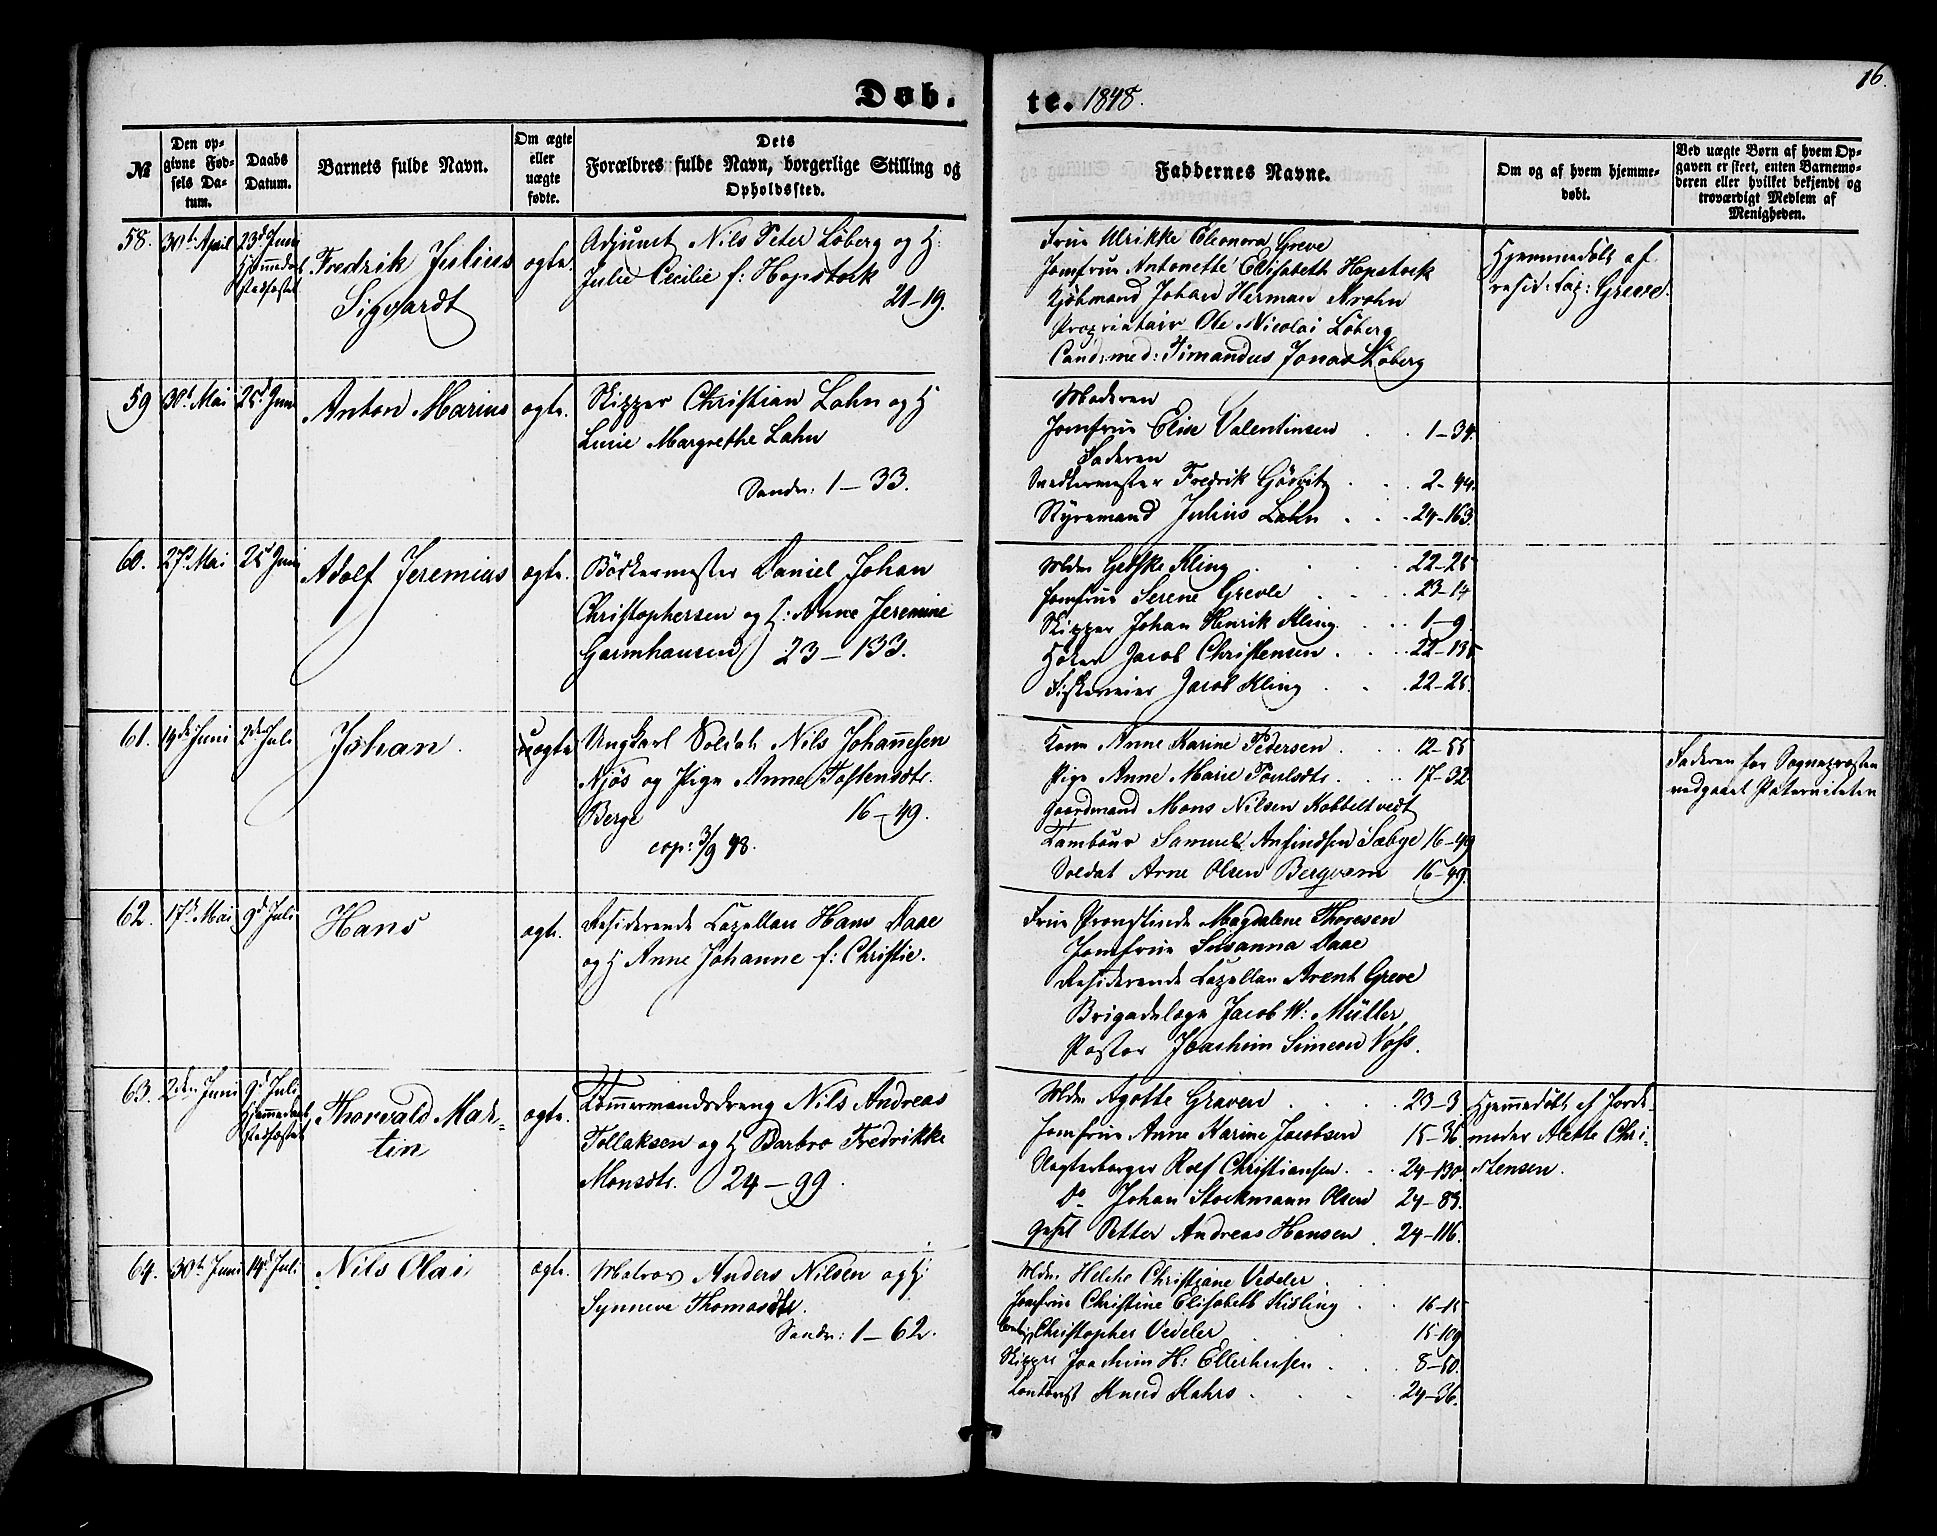 Døb-
te. 1848.
16.
№
Den op-
givne Fød-
sels Da-
tum.
Daabs
Datum.
Barnets fulde Navn.
Om ægte
eller
uægte
fødte.
Dets
Forældres fulde Navn, borgerlige Stilling og
Opholdssted.
Faddernes Navne.
Om og af hvem hjemme-
døbt.
Ved uægte Børn af hvem Op-
gaven er skeet, enten Barnemo-
deren eller hvilket bekjendt og
troværdigt Medlem af
Menigheden.
58.
30te April
23d Juni
Hjemmedåb
stadfæstet
Fredrik Julius
Sigvardt
ægte.
Adjunct Nils Peter Løberg og H:
Julie Cecilie f: Hopstock
21-19.
Frue Ulrikke Eleonora Greve
Jomfrue Antonette Elisabeth Hopstock
Kjøbmand Johan Herman Krohn
Proprietair Ole Nicolai Løberg
Cand: med: Timandus Jonas Løberg
Hjemmedøbt af
resid: Cap: Greve.
59
30t Mai
25d Juni
Anton Marius
ægte.
Skipper Christian Lahn og H
Lucie Margrethe Lahn
Sandv: 1-33.
Moderen
Jomfrue Elise Valentinsen . . 1-34.
Faderen
Snedkermester Fredrik Gørbitz . . 2-44.
Styrmand Julius Lahn . . 24-163.
60.
27d Mai
25d Juni
Adolf Jeremias
ægte.
Bødkermester Daniel Johan
Christophersen og H: Anne Jeremine
Garmhausen 23-133.
Mdm Geske Kling . . 22-25
Jomfrue Serene Greve . . 23-14
Skipper Johan Henrik Kling . . 1-9.
Høker Jacob Christensen . . 22-135
Fiskeveier Jacob Kling . . 22-25.
61.
19de Juni
2den Juli
Johan.
uægte
Ungkarl Soldat Nils Johannesen
Njøs og Pige Anne Tostensdtr.
Berge 16-49.
cop: 3/9 48.
Kone Anne Karine Pedersen . . 12-55
Pige Anne Marie Poulsdtr. . . 17-32.
Gaardmand Mons Nilsen Kobbeltvedt
Tambour Samuel Anfindsen Sæbye 16-49
Soldat Arne Olsen Bergvam 16-49.
Faderen for Sognepræsten
vedgaaet Paterniteten
62.
17d Mai
9d Juli
Hans
ægte.
Residerende Capellan Hans Daae
og H Anne Johanne f: Christie.
Frue Provstinde Magdalene Thoresen
Jomfrue Susanna Daae
Residerende Capellan Arent Greve
Brigadelæge Jacob W: Müller
Pastor Joachim Simeon Voss.
63.
2den Juni
9d Juli
Hjemmedåb
stadfæstet
Thorvald Mar-
tin
ægte.
Tømmermandsdreng Nils Andreas
Tollaksen og H Barbro Fredrikke
Monsdtr. 24-99.
Mdm Agotte Graven . . 23-3
Jomfrue Anne Karine Jacobsen 15-36.
Slagterborger Rolf Christiansen . . 24-130.
Do Johan Stockmann Olsen 24-83.
Gesel Petter Andreas Hansen . 24-116.
Hjemmedøbt af Jorde-
moder Alette Chri-
stensen.
64.
30te Juni
14d Juli
Nils Olai
ægte.
Matros Anders Nilsen og H:
Synneve Thomasdtr.
Sandv: 1-62.
Mdm Helche Christiane Vedeler . .
Jomfrue Christine Elisabeth Kisling . . 16-15
Christopher Vedeler . . 15-109
Skipper Joachim H: Ellerhusen . . 8-50.
Contorist Knud Kahrs . . 24-36.